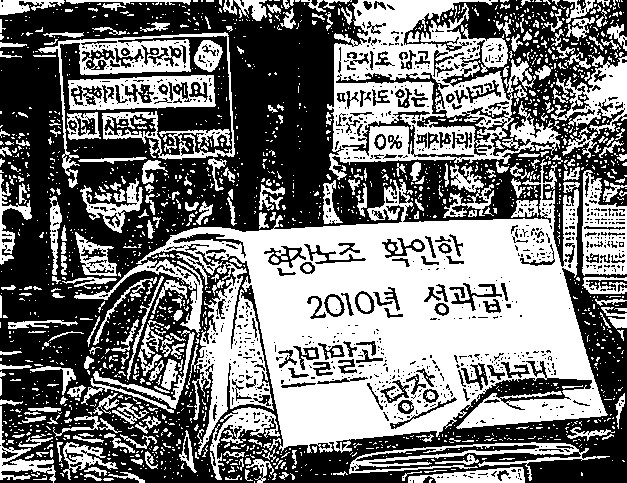 경영진은 사무직이
단결하기 나름 이에요!
이제 사무노조
가입 하세요
묻지도 않고
따지지도 않는 인사고과
0% 폐지하라!
현장노조 확인한
2010년 성과급!
잔말말고
당장 내놔라!